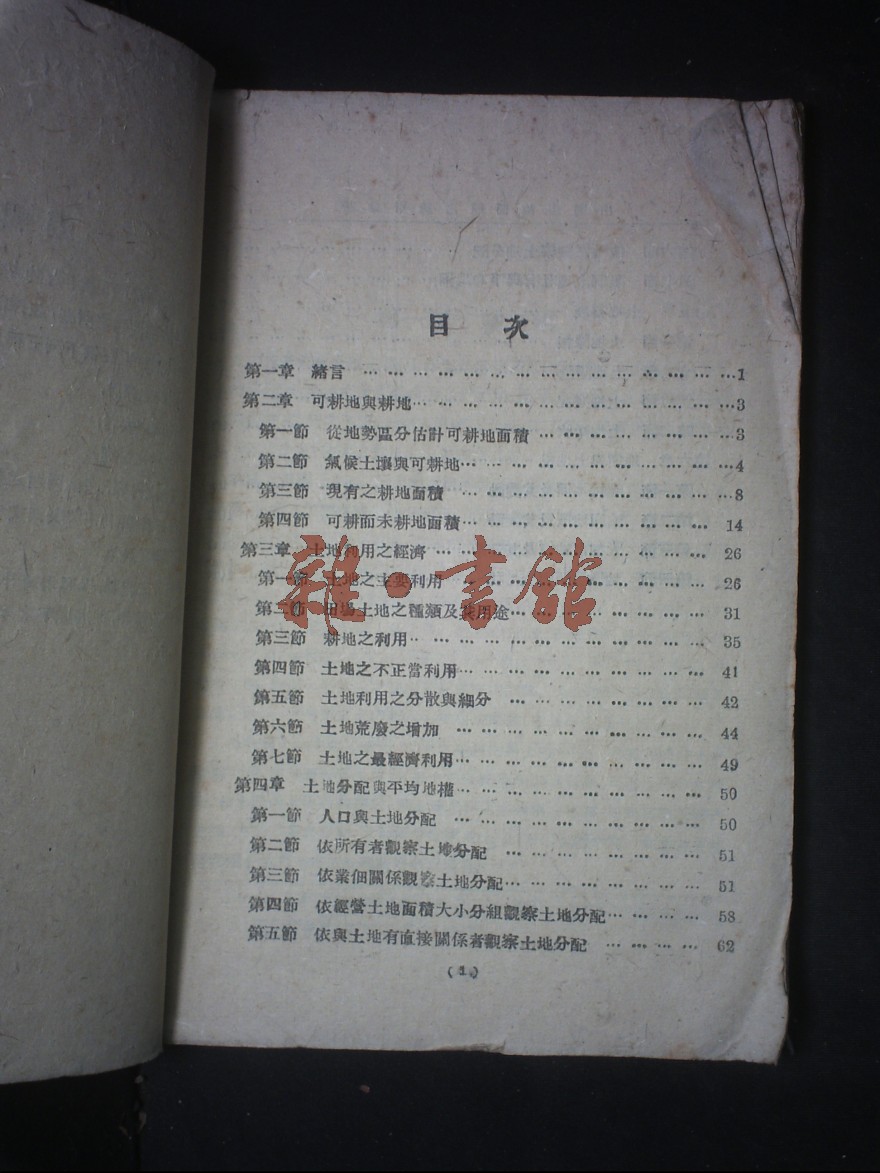 目 次
第一章 緒言 … … … … … … … … … … … … … … …1
第二章 可耕地與耕地… … … … … … … … … … … … …3
第一節 從地勢區分估計可耕地面積 … … … … … … … …3
第二節 氣候土壤與可耕地… … … … … … … … … … …4
第三節 現有之耕地面積 … … … … … … … … … … … 8
第四節 可耕而未耕地面積… … … … … … … … … … 14
第三章 土地利用之經濟 … … … … … … … … … … … 26
第一節 土地之主要利用 … … … … … … … … … … 26
第二節 田場土地之種類及其用途… … … … … … … … 31
第三節 耕地之利用… … … … … … … … … … … … 35
第四節 土地之不正當利用… … … … … … … … … … 41
第五節 土地利用之分散與細分 … … … … … … … … 42
第六節 土地荒廢之增加 … … … … … … … … … … 44
第七節 土地之最經濟利用… … … … … … … … … … 49
第四章 土地分配與平均地權… … … … … … … … … … 50
第一節 人口與土地分配 … … … … … … … … … … 50
第二節 依所有者觀察土地分配 … … … … … … … … 51
第三節 依業佃關係觀察土地分配… … … … … … … … 51
第四節 依經營土地面積大小分組觀察土地分配… … … … 58
第五節 依與土地有直接關係者觀察土地分配 … … … … 62
(1)
雜·書館